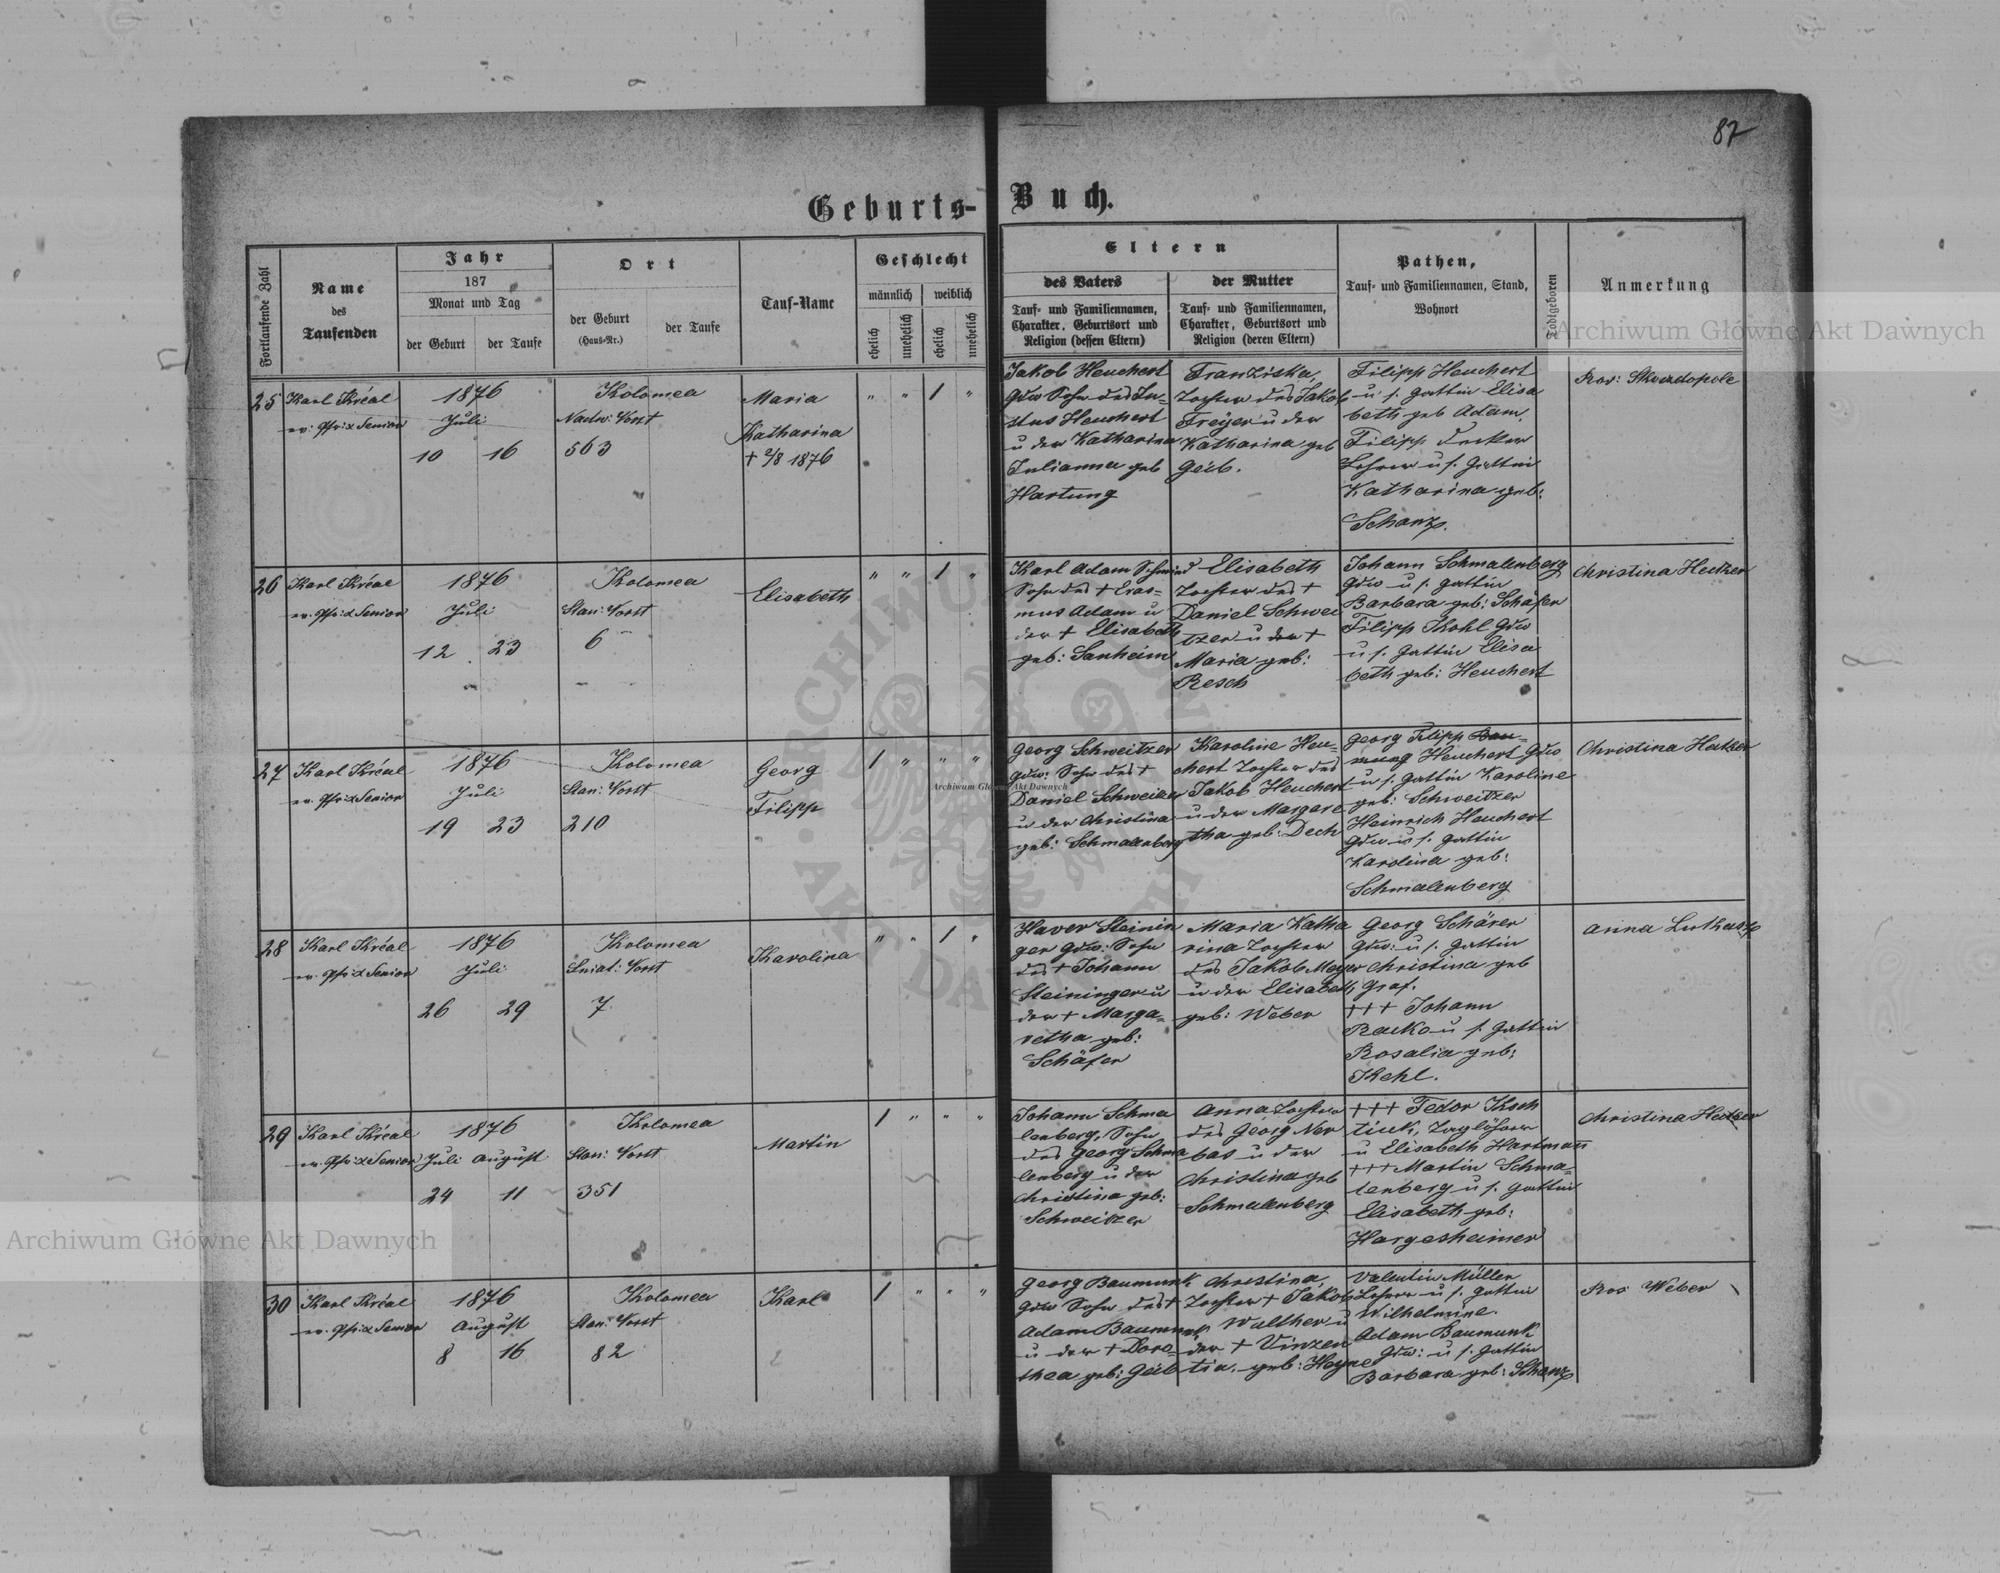 87
Geburts-Buch.
Fortlaufende Zahl
Name
des
Taufenden
Jahr
187
Monat und Tag
der Geburt
der Taufe
Ort
der Geburt
(Haus-Nr.)
der Taufe
Tauf-Name
Geschlecht
männlich
weiblich
ehelich
unehelich
ehelich
unehelich
Eltern
des Vaters
Tauf- und Familiennamen,
Charakter, Geburtsort und
Religion (dessen Eltern)
der Mutter
Tauf- und Familiennamen,
Charakter, Geburtsort und
Religion (deren Eltern)
Pathen,
Tauf- und Familiennamen, Stand,
Wohnort
Todtgeboren
Anmerkung
Archiwum Główne Akt Dawnych
25
Karl Kréal
ev: Pfr: & Senior
1876
Juli
10 16
Kolomea
Nadw: Vorst
563
Maria
Katharina
+ 2/8 1876
" " 1 "
Jakob Heuchert
Gdw Sohn des Ju-
stus Heuchert
u der Katharina
Julianna geb
Hartung
Franziska,
Tochter des Jakob
Freyer u der
Katharina geb
Geib.
Filipp Heuchert
u s. Gattin Elisa
beth geb Adam.
Filipp Decker
Lehrer u s. Gattin
Katharina geb:
Schanz.
Ros: Skwedopole
26
Karl Kréal
ev: Pfr: & Senior
1876
Juli
12 23
Kolomea
Stan: Vorst
6
Elisabeth
" " 1 "
Karl Adam Schmied
Sohn des + Eras-
mus Adam u
der + Elisabeth
geb: Sanheim
Elisabeth
Tochter des +
Daniel Schwei
tzer u der +
Maria geb:
Resch
Johann Schmalenberg
Gdw u s. Gattin
Barbara geb: Schäfer
Filipp Kohl Gdw
u s. Gattin Elisa
beth geb: Heuchert
Christina Hecker
27
Karl Kréal
ev: Pfr: & Senior
1876
Juli
19 23
Kolomea
Stan: Vorst
210
Georg
Filipp
1 " " "
Georg Schweitzer
Gdw: Sohn des +
Daniel Schweitzer
u der Christina
geb: Schmalenberg
Karoline Heu-
chert Tochter des
Jakob Heuchert
u der Margare
tha geb: Dech
Georg Filipp
Heuchert Gdw
u s. Gattin Karoline
geb: Schweitzer
Heinrich Heuchert
Gdw u s. Gattin
Karolina geb:
Schmalenberg
Christina Hecker
Archiwum Główne Akt Dawnych
28
Karl Kréal
ev: Pfr: & Senior
1876
Juli
26 29
Kolomea
Sniat: Vorst
7
Karolina
" " 1 "
Xaver Steinin
ger Gdw: Sohn
des + Johann
Steininger u
der + Marga-
retha geb:
Schäfer
Maria Katha
rina Tochter
des Jakob Meyer
u der Elisabeth
geb: Weber
Georg Schärer
Gdw: u s. Gattin
Christina geb
Graf.
+++ Johann
Racko u s. Gattin
Rosalia geb:
Kehl.
Anna
29
Karl Kréal
ev: Pfr: & Senior
1876
Juli August
24 11
Kolomea
Stan: Vorst
351
Martin
1 " " "
Johann Schma
lenberg, Sohn
des Georg Schma
lenberg u der
Christina geb:
Schweitzer
Anna Tochter
des Georg Ner
bas u der
Christina geb
Schmalenberg
+++ Fedor
Taglöhner
u Elisabeth Hartmann
+++ Martin Schma-
lenberg u s. Gattin
Elisabeth geb:
Hargesheimer
Christina Hecker
Archiwum Główne Akt Dawnych
30
Karl Kréal
ev: Pfr: & Senior
1876
August
8 16
Kolomea
Stan: Vorst
82
Karl
1 " " "
Georg Baumunk
Gdw Sohn des +
Adam Baumunk
u der + Doro-
thea geb: Geib
Christina,
Tochter + Jakob
Walther u
der + Vinzen
tia. geb: Heyne
Valentin Müller
Lehrer u s. Gattin
Wilhelmine.
Adam Baumunk
Gdw: u s. Gattin
Barbara geb: Schanz
Ros Weber